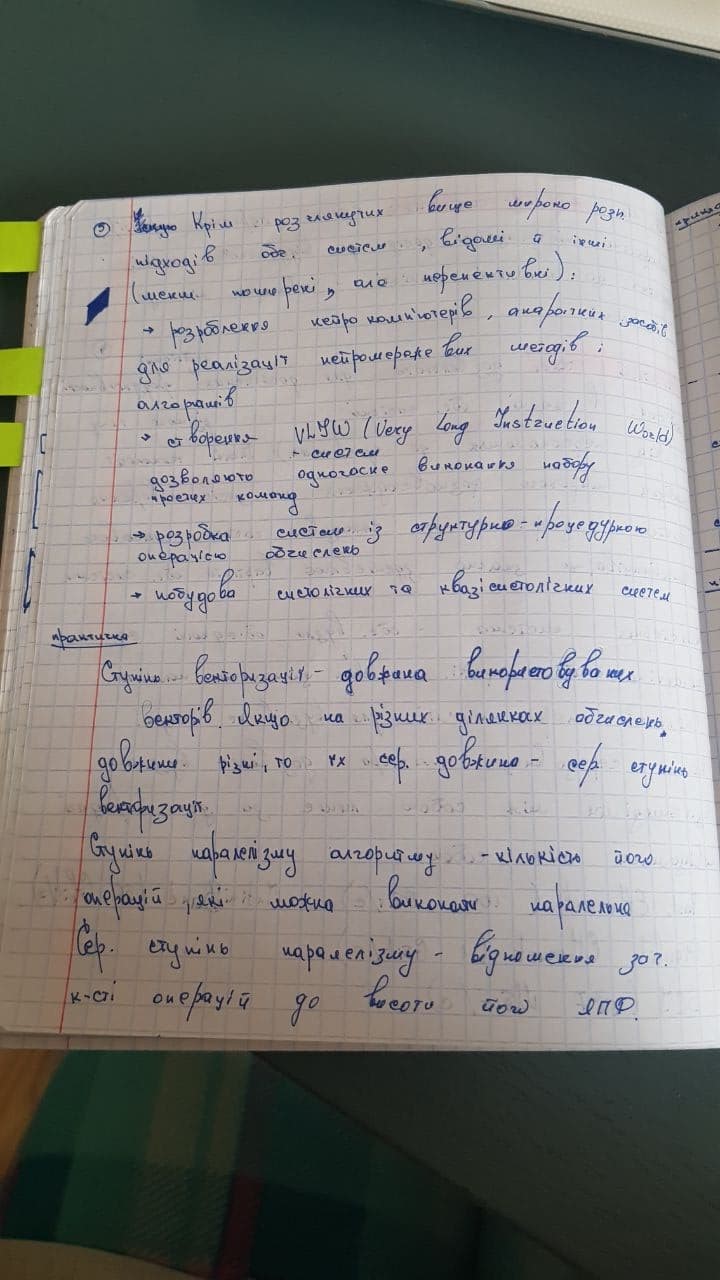 ⑤ Крім розглянутих вище широко розп.
підходів обч. систем, відомі й інші
(менш поширені, але перспективні):
→ розроблення нейрокомп'ютерів, апаратних засобів
для реалізації нейромережевих методів і
алгоритмів
→ створення VLIW (Very Long Instruction World)
- систем
дозволяють одночасне виконання набору
простих команд
→ розробка систем із структурно-процедурною
операцією обчислень
→ побудова систолічних та квазісистолічних систем
практика
Ступінь векторизації - довжина використовуваних
векторів. Якщо на різних ділянках обчислень
довжини різні, то їх сер. довжина - сер. ступінь
векторизації.
Ступінь паралелізму алгоритму - кількість його
операцій, які можна виконати паралельно
Сер. ступінь паралелізму - відношення заг.
к-сті операцій до висоти його ЯПФ.